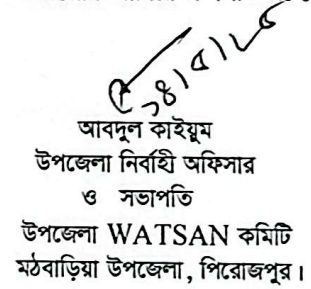 আবদুল কাইয়ুম
উপজেলা নির্বাহী অফিসার
ও সভাপতি
উপজেলা WATSAN কমিটি
মঠবাড়িয়া উপজেলা, পিরোজপুর।